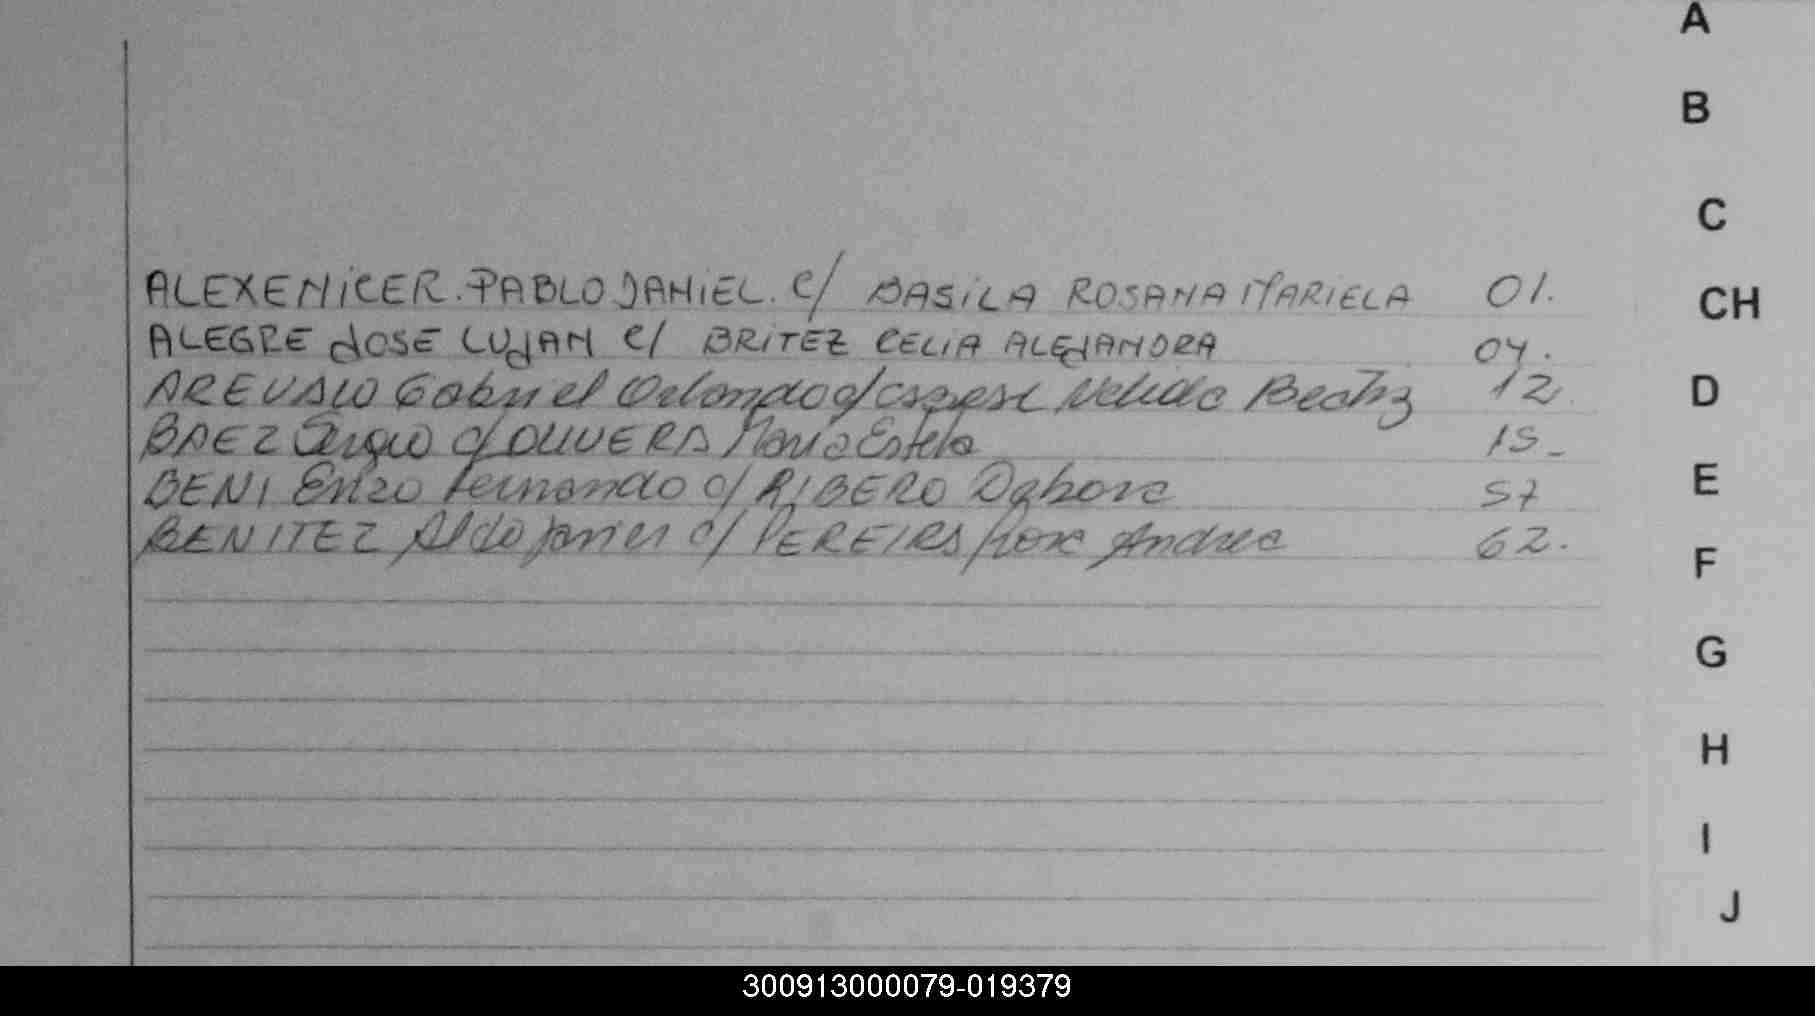 A
B
C
ALEXENICER. PABLO DANIEL. c/ BASILA ROSANA MARIELA 01.
CH
ALEGRE JOSE LUJAN c/ BRITEZ CELIA ALEJANDRA 04.
D
AREVALO Gabriel Orlando c/ Nelida Beatriz 12.
BAEZ Sergio c/ OLIVERA Maria Estela 15_
E
BENI Enzo Fernando c/ RIBERO Debora 57
BENITEZ Aldo Javier c/ PEREIRA Rosa Andrea 62.
F
G
H
I
J
300913000079-019379